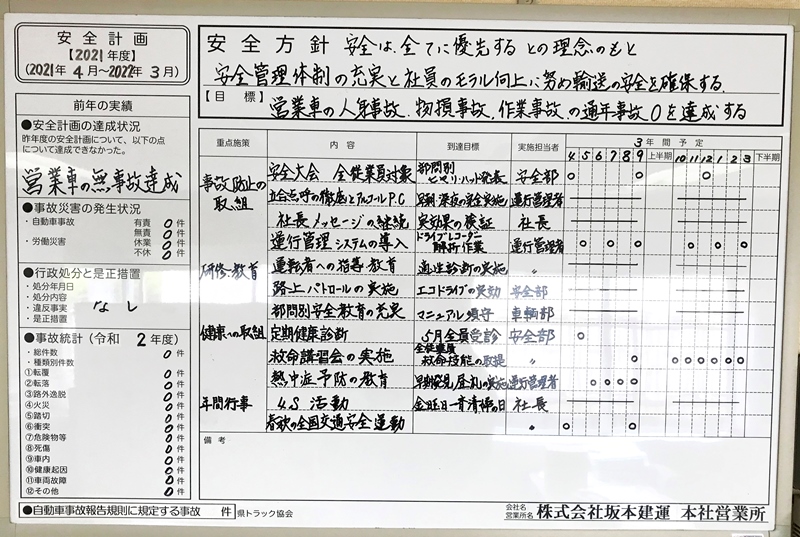 安全計画
【2021年度】
(2021年4月～2022年3月)
安全方針 安全は、全てに優先するとの理念のもと
安全管理体制の充実と社員のモラル向上に努め輸送の安全を確保する。
【目標】営業車の人身事故、物損事故、作業事故、の通年事故0を達成する
前年の実績
●安全計画の達成状況
昨年度の安全計画について、以下の点
について達成できなかった。
営業車の無事故達成
●事故災害の発生状況
・自動車事故 有責 0 件
無責 0 件
・労働災害 休業 0 件
不休 0 件
●行政処分と是正措置
・処分年月日
・処分内容
・違反事実
・是正措置
なし
●事故統計(令和 2年度)
・総件数 0 件
・種類別件数
①転覆 0 件
②転落 0 件
③路外逸脱 0 件
④火災 0 件
⑤踏切 0 件
⑥衝突 0 件
⑦危険物等 0 件
⑧死傷 0 件
⑨車内 0 件
⑩健康起因 0 件
⑪車両故障 0 件
⑫その他 0 件
●自動車事故報告規則に規定する事故 件
県トラック協会
重点施策 内容 到達目標 実施担当者 3年間予定
4 5 6 7 8 9 上半期 10 11 12 1 2 3 下半期
事故防止の取組 安全大会 全従業員対象 部門別ヒヤリ・ハット発表 安全部
立会点呼の徹底とアルコールP.C 早朝・深夜の安全実施 運行管理者
社長メッセージの継続 実効果の検証 社長
運行管理システムの導入 ドライブレコーダー解析作業 運行管理者
研修・教育 運転者への指導・教育 適性診断の実施 〃
路上パトロールの実施 エコドライブの実効 安全部
部門別安全教育の充実 マニュアル順守 車輌部
健康への取組 定期健康診断 5月全員受診 安全部
救命講習会の実施 全従業員救命技能の取得 〃
熱中症予防の教育 運行管理者
年間行事 4.S活動 社長
春秋の全国交通安全運動
備考
会社名
営業所名 株式会社坂本建運 本社営業所